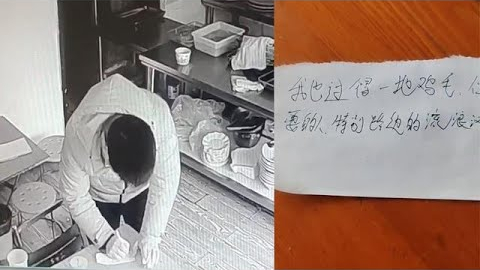 我也过得一地鸡毛，但
要的人，特别路边的流浪汉